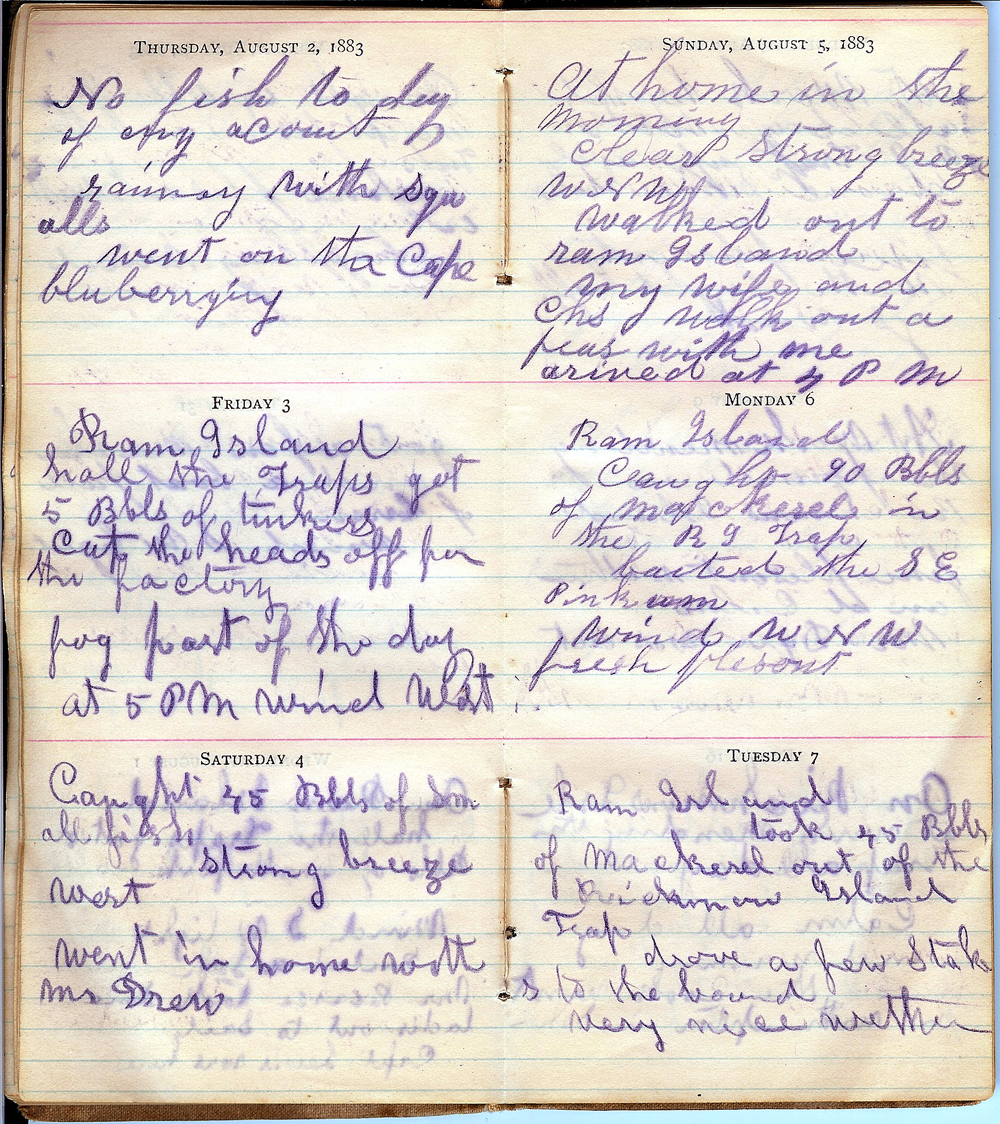 THURSDAY, AUGUST 2, 1883
No fish to day
of eny acount
rainny with squ
alls
went on the Cape
bluberrying
FRIDAY 3
Ram Island
hall the Traps got
5 Bbls of tinkers
Cut the heads off for
the factory
fog part of the day
at 5 PM wind West
SATURDAY 4
Caught 45 Bbls of Sm
all fish
strong breeze
west
went in home with
Mr Drew
SUNDAY, AUGUST 5, 1883
At home in the
morning
Clear strong breeze
W N W
walked out to
ram Island
my wife and
Chs walk out a
peas with me
arived at 4 P M
MONDAY 6
Ram Island
Caught 90 Bbls
of mackerel in
the R I Trap
baited the S E
wind W N W
fresh
TUESDAY 7
Ram Island
took 45 Bbls
of Mackerel out of the
Island
Trap
drove a few Stake
s to the bound
very nice wether